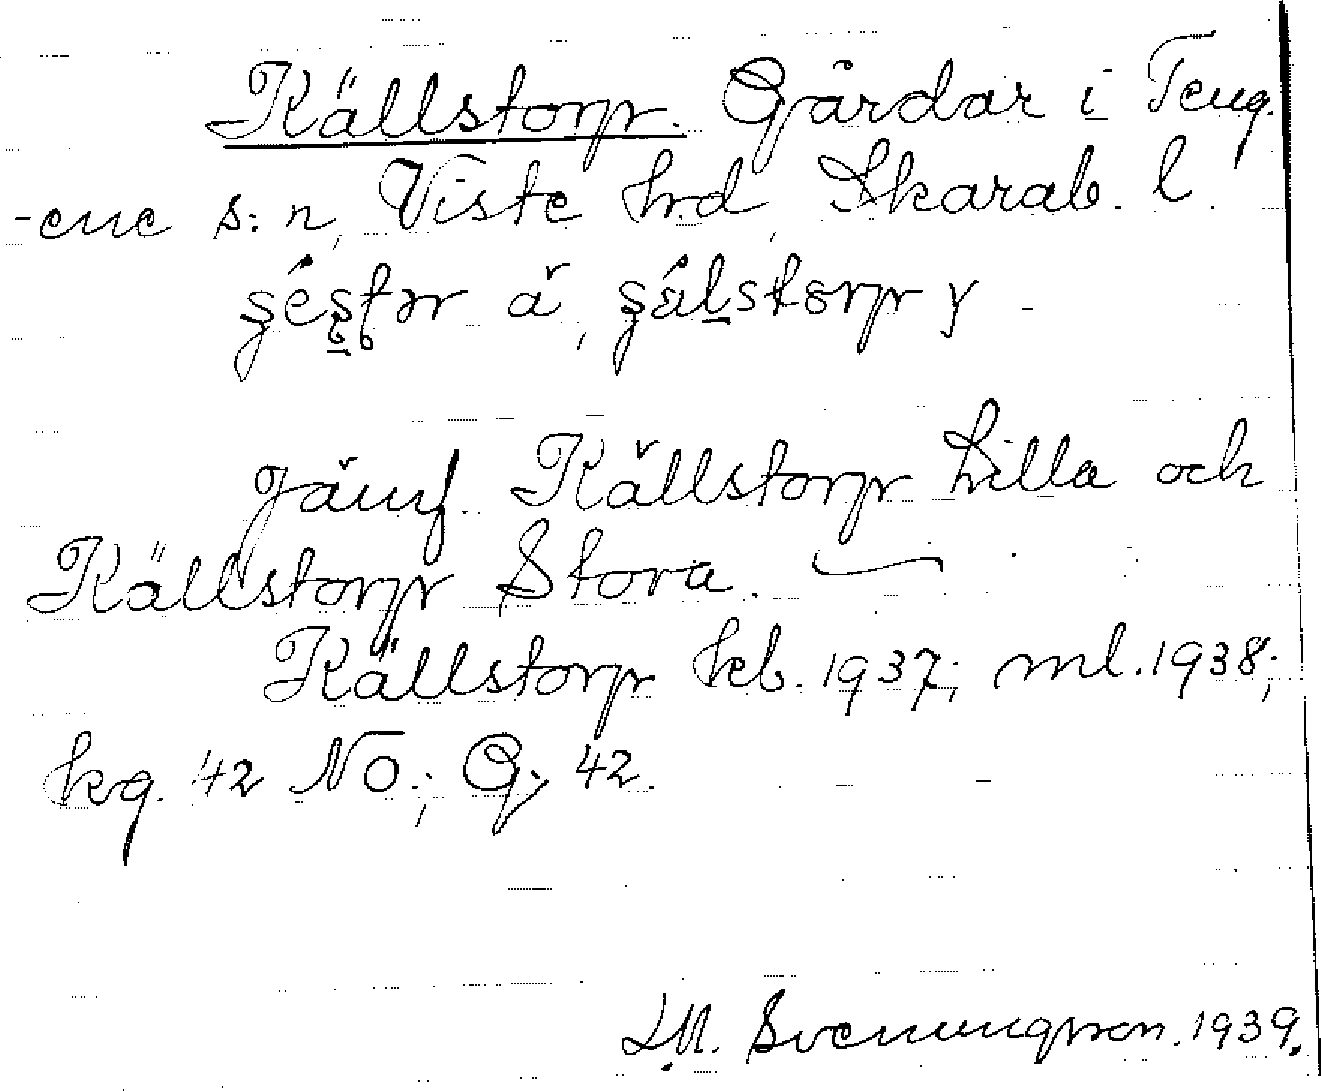 Källstorp. Gårdar i Teng-
-ene s:n, Viste hd, Skarab. l.
y
Jämf. Källstorp Lilla och
Källstorp Stora.
Källstorp kb. 1937; ml. 1938;
kg. 42 NO.; Gy 42.
Svenungsson. 1939.